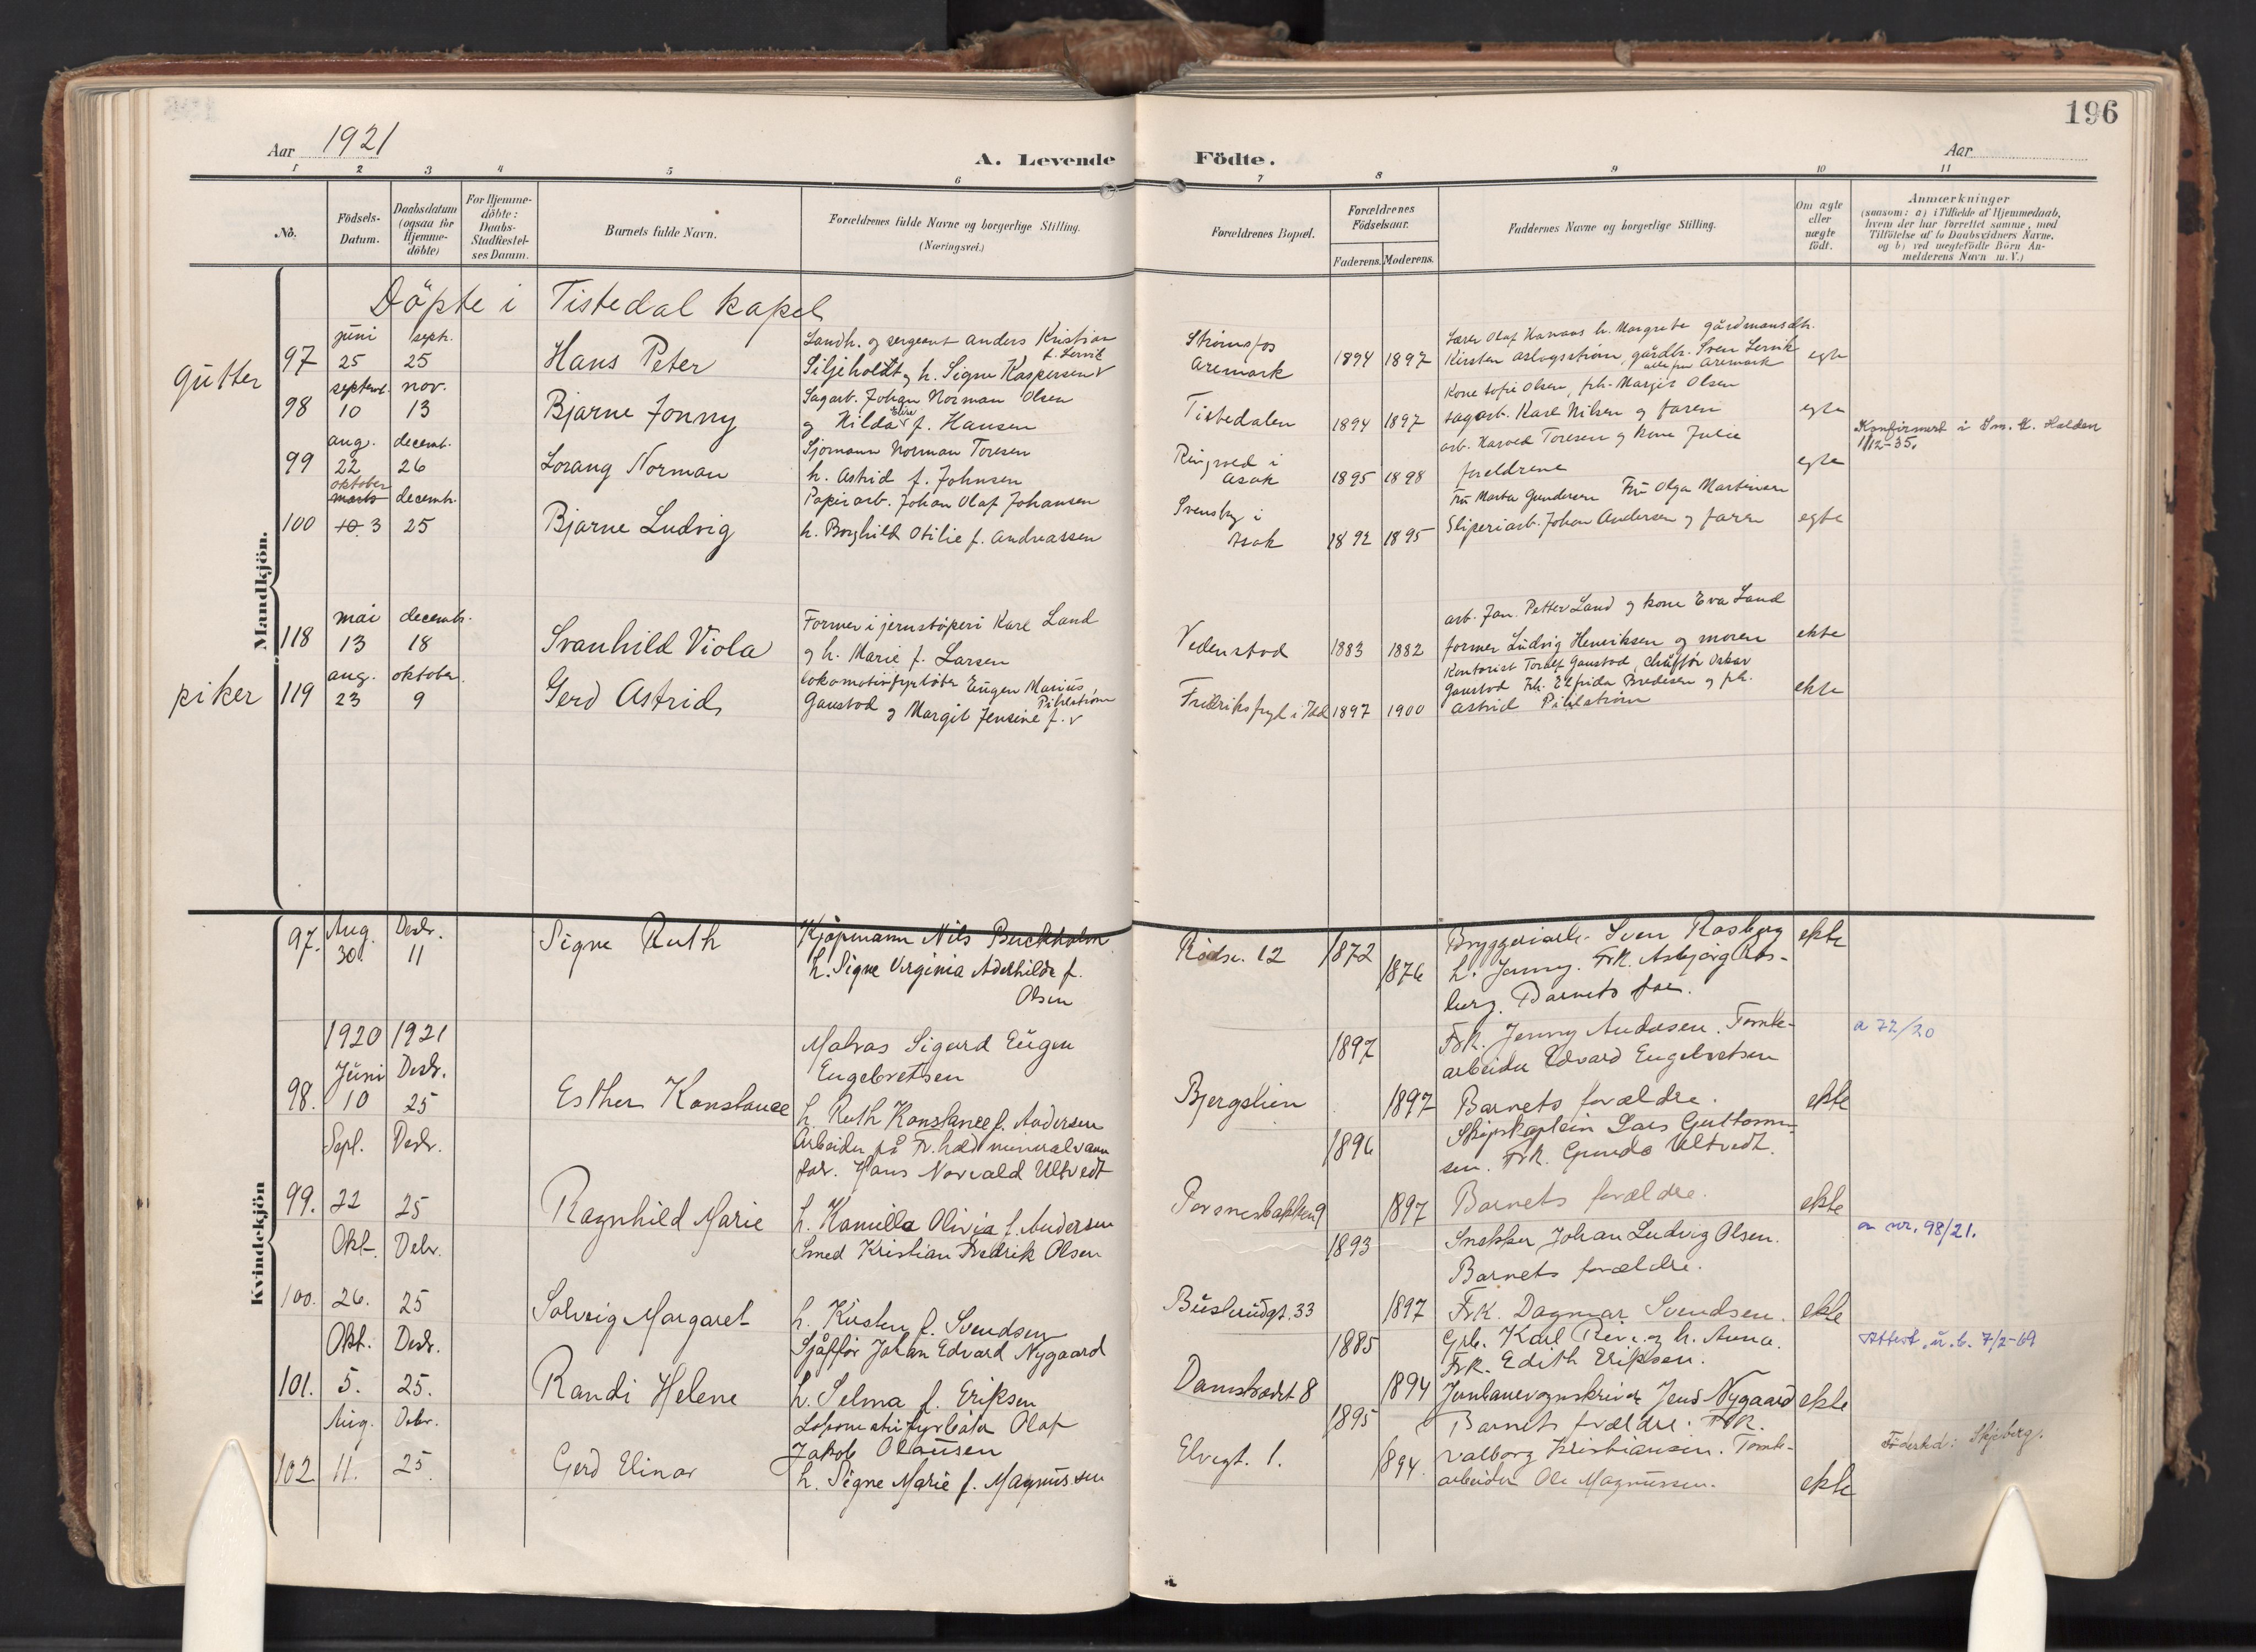 196
Aar 1921
A. Levende Födte.
Aar
1 2 3 4 5 6 7 8 9 10 11
No.
Födsels-Datum.
Daabsdatum (ogsaa for Hjemme-döbte)
For Hjemme-döbte: Daabs-Stadfæstel-ses Datum.
Barnets fulde Navn.
Forældrenes fulde Navne og borgerlige Stilling. (Næringsvei.)
Forældrenes Bopæl.
Forældrenes Födselsaar.
Faderens. Moderens.
Faddernes Navne og borgerlige Stilling.
Om ægte eller uægte födt.
Anmærkninger
(saasom: a) i Tilfælde af Hjemmedaab,
hvem der har forrettet samme, med
Tilföielse af to Daabsvidners Navne,
og b) ved uægtefödte Börn An-
melderens Navn m. V.)
Döpte i Tistedal kapel
Mandkjön.
gutter
97 juni 25 sept. 25
Hans Peter
Landh. og sergeant Anders Kristian
Siljeholdt og h. Signe Kaspersen f. Lervik
Strömsfos
Aremark
1894 1897
Lærer Olaf h. Margrete gårdmandsdtr.
Kirsten Aslagsström, gårdbr. Sven Lervik
alle fra Aremark
egte
98 septemb. 10 nov. 13
Bjarne Jonny
Sagarb. Johan Norman Olsen
og Hilda Elise f. Hansen
Tistedalen
1894 1897
Kone Sofie Olsen, frk. Margit Olsen
sagarb. Karl Nilsen og faren
egte
Konfirmert i Im. k. Halden
1/12-35.
99 aug. 22 decemb. 26
Lorang Norman
Sjömann Norman Toresen
h. Astrid f. Johnsen
Ringrød i
Asak
1895 1898
arb. Harald Toresen og kone Julie
foreldrene
egte
100 marts oktober 10. 3 decemb. 25
Bjarne Ludvig
Papirarb. Johan Olaf Johansen
h. Borghild Otilie f. Andreassen
Svensby i
Asak
1892 1895
Fru Marta Gundersen Fru Olga Martinsen
Sliperiarb. Johan Andersen og faren
egte
piker
118 mai 13 decemb. 18
Svanhild Viola
Former i jernstöperi Karl Land
og h. Marie f. Larsen
Vedenstad
1883 1882
arb. Jan Petter Land og kone Eva Land
former Ludvig Henriksen og moren
ekte
119 aug. 23 oktober. 9
Gerd Astrid
lokomotivfyrböter Eugen Marius
Gaustad og Margit Jensine f. Pihlström
Fredriksfryd i Idd
1897 1900
Kontorist Torleif Gaustad, chaufför Oskar
Gaustad Frk. Elfrida Bredesen og frk.
Astrid Pihlström
ekte
Kvindekjön
97. Aug. 30. Desbr. 11
Signe Ruth
Kjöpmann Nils Buckholm
h. Signe Virginia Aderhilde f.
Olsen
Rödsv. 12
1872 1876
Bryggeriarb. Sven Rosberg
h. Jenny. Frk. Asbjörg Ros-
berg. Barnets far.
ekte
98. 1920 Juni 10 1921 Desbr. 25
Esther Konstance
Matros Sigurd Eugen
Engebretsen
h. Ruth Konstance f. Andersen
Bjergstien
1897 1897
Frk. Jenny Andersen. Tomte-
arbeider Edvard Engebretsen
Barnets forældre.
ekte
a 72/20
99. Sept. 22 Desbr. 25
Ragnhild Marie
Arbeider på Fr.hald mineralvann
fabr. Hans Norvald Ultvedt
h. Kamilla Olivia f. Andersen
Porsnesbakken 9
1896 1897
Skipskaptein Lars Guttorm-
sen. Frk. Gunda Ultvedt.
Barnets forældre.
ekte
100. Okt. 26. Debr. 25
Solveig Margaret
Smed Kristian Fredrik Olsen
h. Kirsten f. Svendsen
Buskrudgt. 33
1893 1897
Snekker Johan Ludvig Olsen.
Barnets forældre.
Frk. Dagmar Svendsen.
ekte
a nr. 98/21.
101. Okt. 5. Desbr. 25.
Randi Helene
Sjåffør Johan Edvard Nygaard
h. Selma f. Eriksen
Damstrædet 8
1885 1894
Grb. Karl Reiv og h. Anna.
Frk. Edith Eriksen.
Jernbanevognskriver Jens Nygaard
ekte
Attest. u.b. 7/2-69
102 Aug. 11. Debr. 25.
Gerd Elinor
Lokomotivfyrböter Olaf
Jakob Olausen
h. Signe Marie f. Magnussen
Elvegt. 1.
1895 1894.
Barnets forældre. Frk.
Valborg Kristiansen. Tomte-
arbeider Ole Magnussen.
ekte
Födested: Skjeberg.